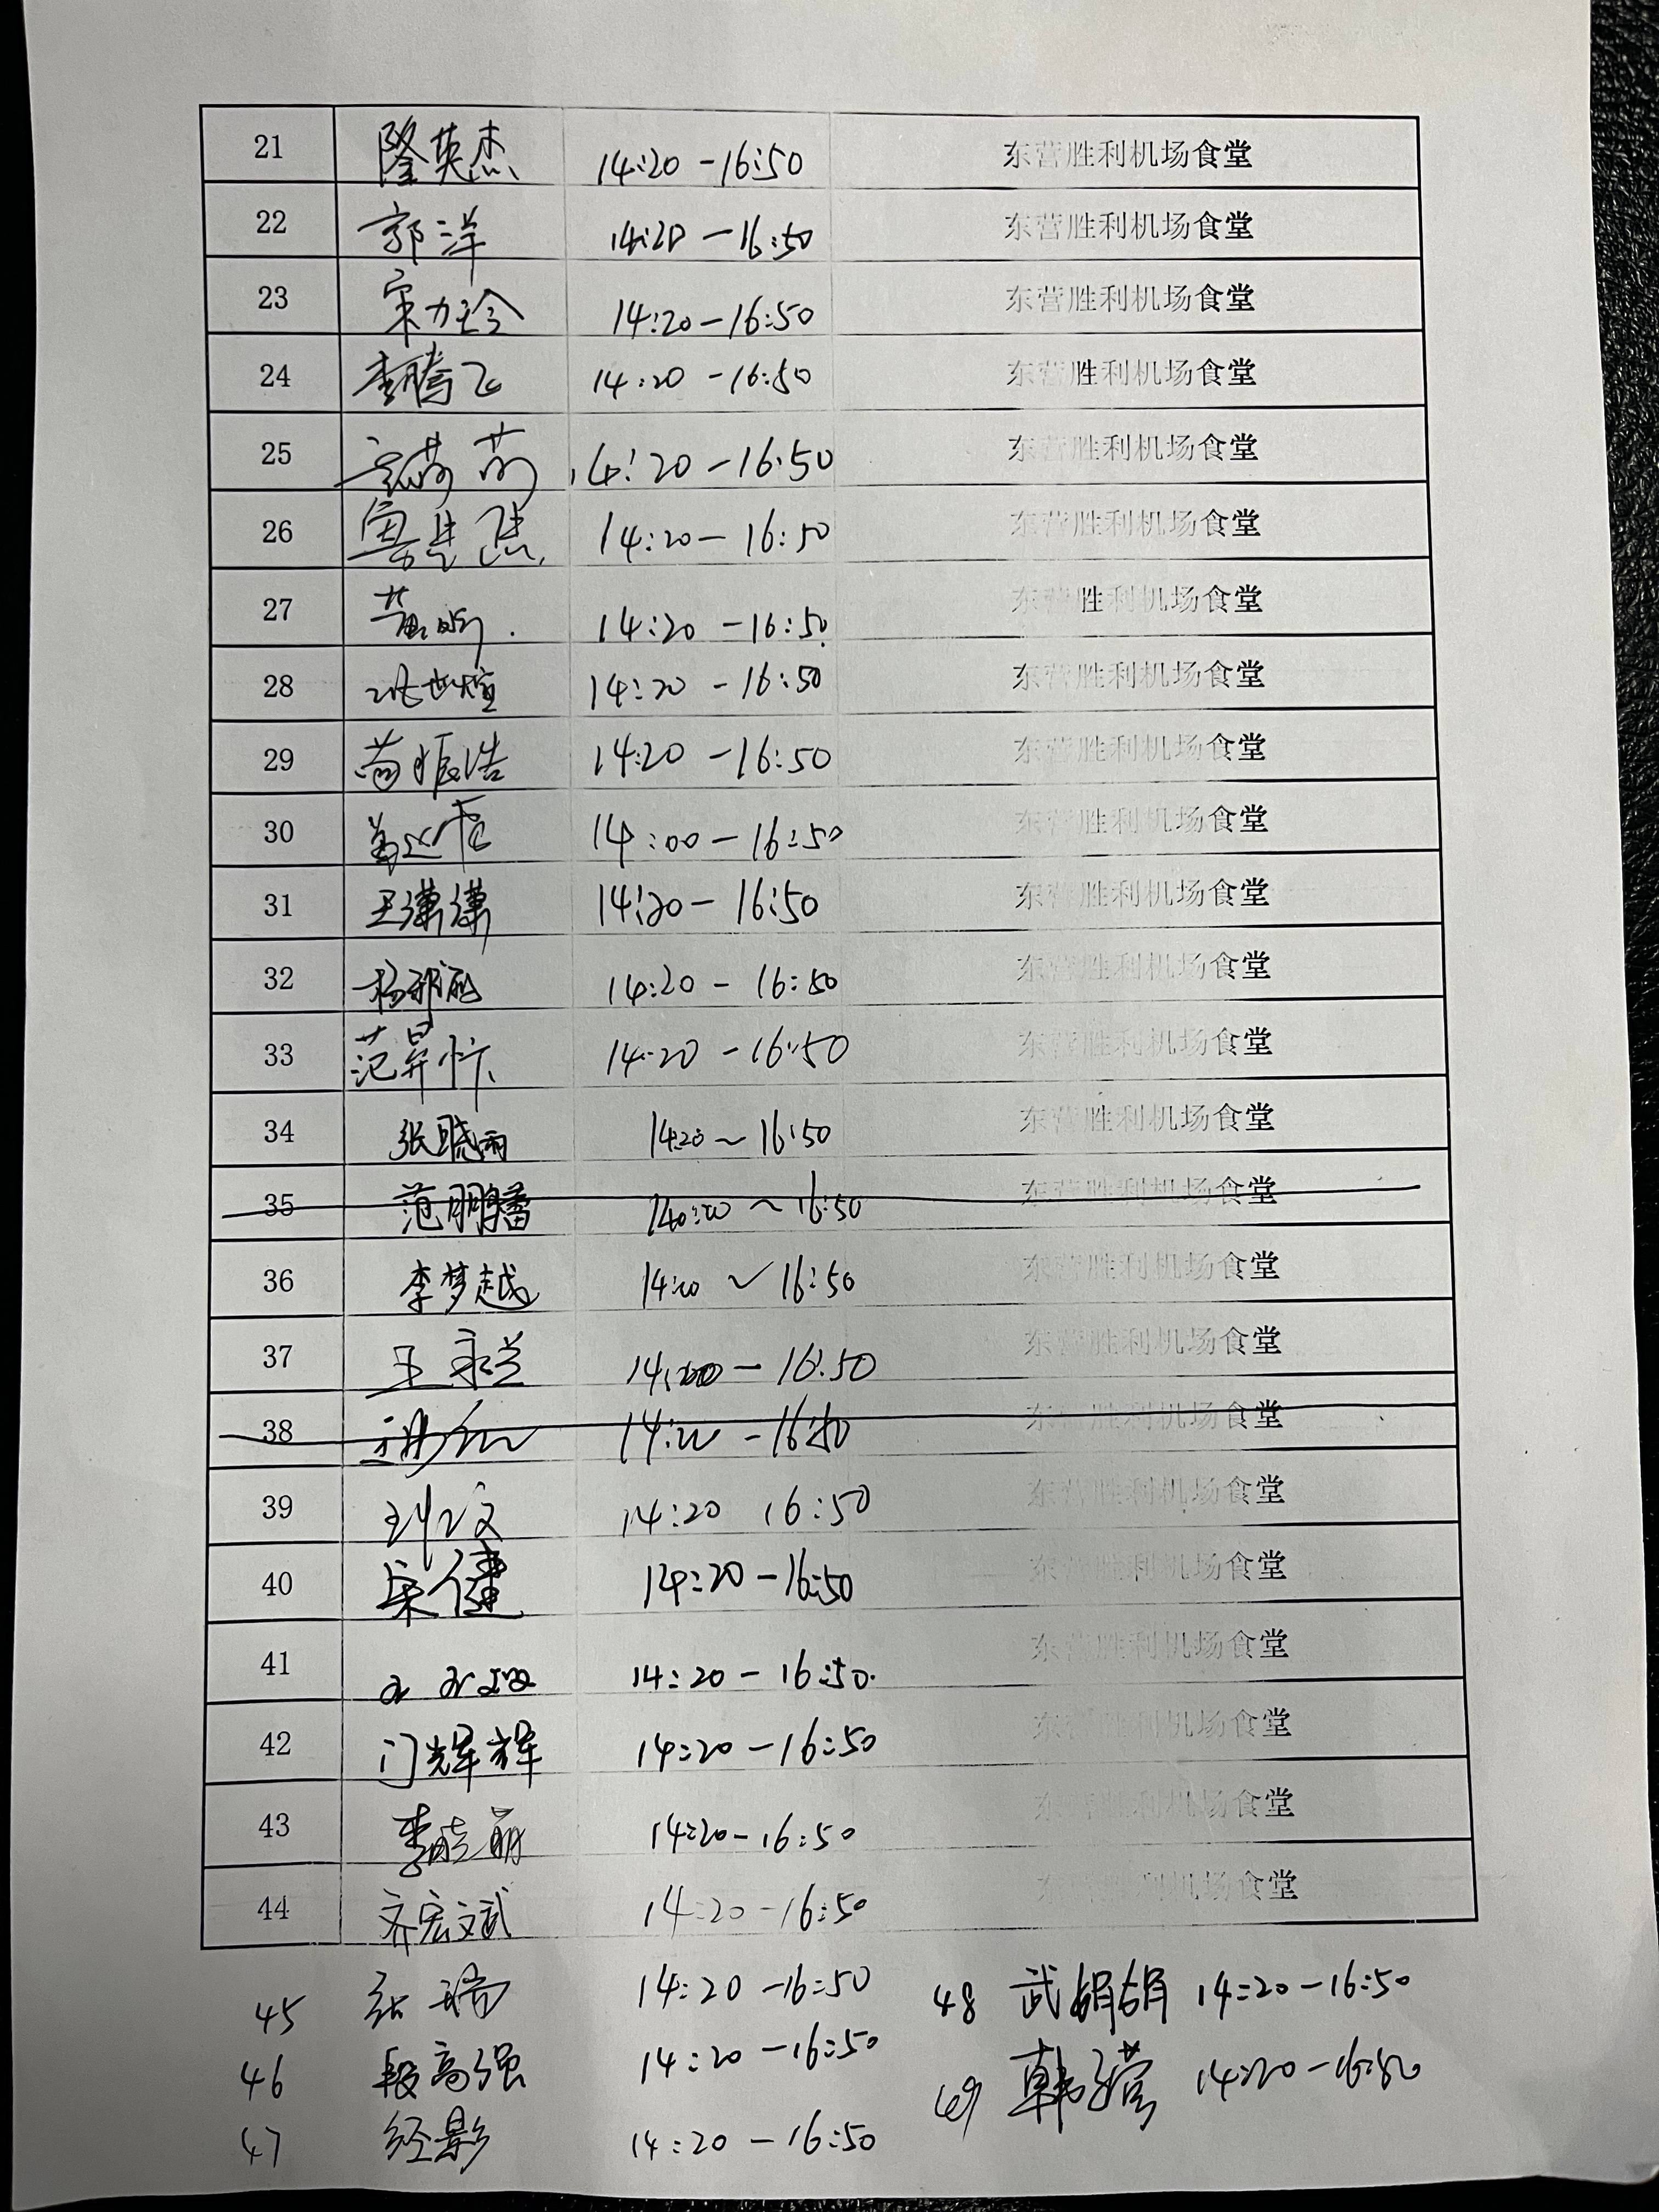 21 隆英杰 14:20-16:50 东营胜利机场食堂
22 郭洋 14:20-16:50 东营胜利机场食堂
23 宋力玲 14:20-16:50 东营胜利机场食堂
24 李腾飞 14:20-16:50 东营胜利机场食堂
25 14:20-16:50 东营胜利机场食堂
26 14:20-16:50 东营胜利机场食堂
27 14:20-16:50 东营胜利机场食堂
28 14:20-16:50 东营胜利机场食堂
29 苟振浩 14:20-16:50 东营胜利机场食堂
30 14:00-16:50 东营胜利机场食堂
31 王潇潇 14:20-16:50 东营胜利机场食堂
32 14:20-16:50 东营胜利机场食堂
33 范昇忭 14:20-16:50 东营胜利机场食堂
34 张晓雨 14:20~16:50 东营胜利机场食堂
35 范鹏 ~16:50 东营胜利机场食堂
36 李梦越 14:20~16:50 东营胜利机场食堂
37 王 -16:50 东营胜利机场食堂
38 东营胜利机场食堂
39 刘文 14:20 16:50 东营胜利机场食堂
40 宋健 14:20-16:50 东营胜利机场食堂
41 14:20-16:50. 东营胜利机场食堂
42 门辉辉 14:20-16:50 东营胜利机场食堂
43 李晓丽 14:20-16:50 东营胜利机场食堂
44 齐宏斌 14:20-16:50 东营胜利机场食堂
45 张瑞 14:20-16:50 48 武娟娟 14:20-16:50
46 段高强 14:20-16:50 49 韩莹 14:20-16:50
47 经影 14:20-16:50